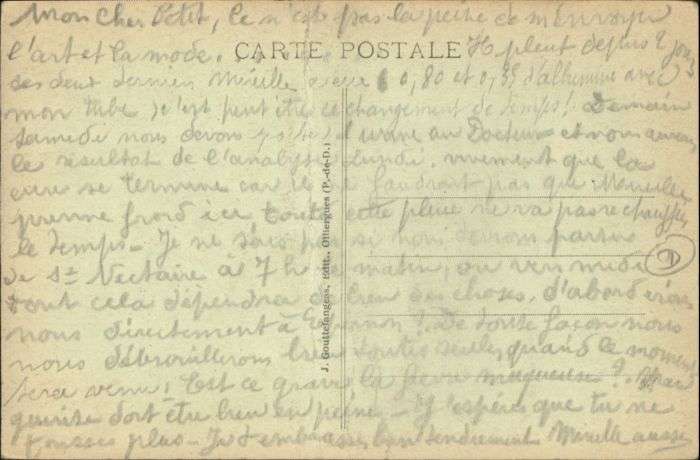 Mon Cher Petit, Ce n'est pas la peine de m'envoyer
l'art et la mode. Il pleut depuis 2 jours
CARTE POSTALE
ces deux derniers Mireille a eu 0,80 et 0,85 d'albumine avec
mon tube, c'est peut être ce changement de temps! Demain
samedi nous devons porter l'urine au Docteur et nous aurons
le résultat de l'analyse Lundi. vivement que la
cure se termine car il ne faudrait pas que Mireille
prenne froid ici toute cette pluie ne va pas réchauffer
le temps - Je ne sais pas si nous devrons partir
de St Nectaire à 7 h du matin, ou vers midi
tout cela dépendra de bien des choses, d'abord irons
nous directement à ? De toute façon nous
nous débrouillerons bien toutes seules quand le moment
sera venu! Est ce grave la fièvre muqueuse?
doit être bien en peine - J'espère que tu ne
tousses plus - Je t'embrasse bien tendrement Mireille aussi
J. Gouttefangeas, Edit., Olliergues (P.-de-D.)
D